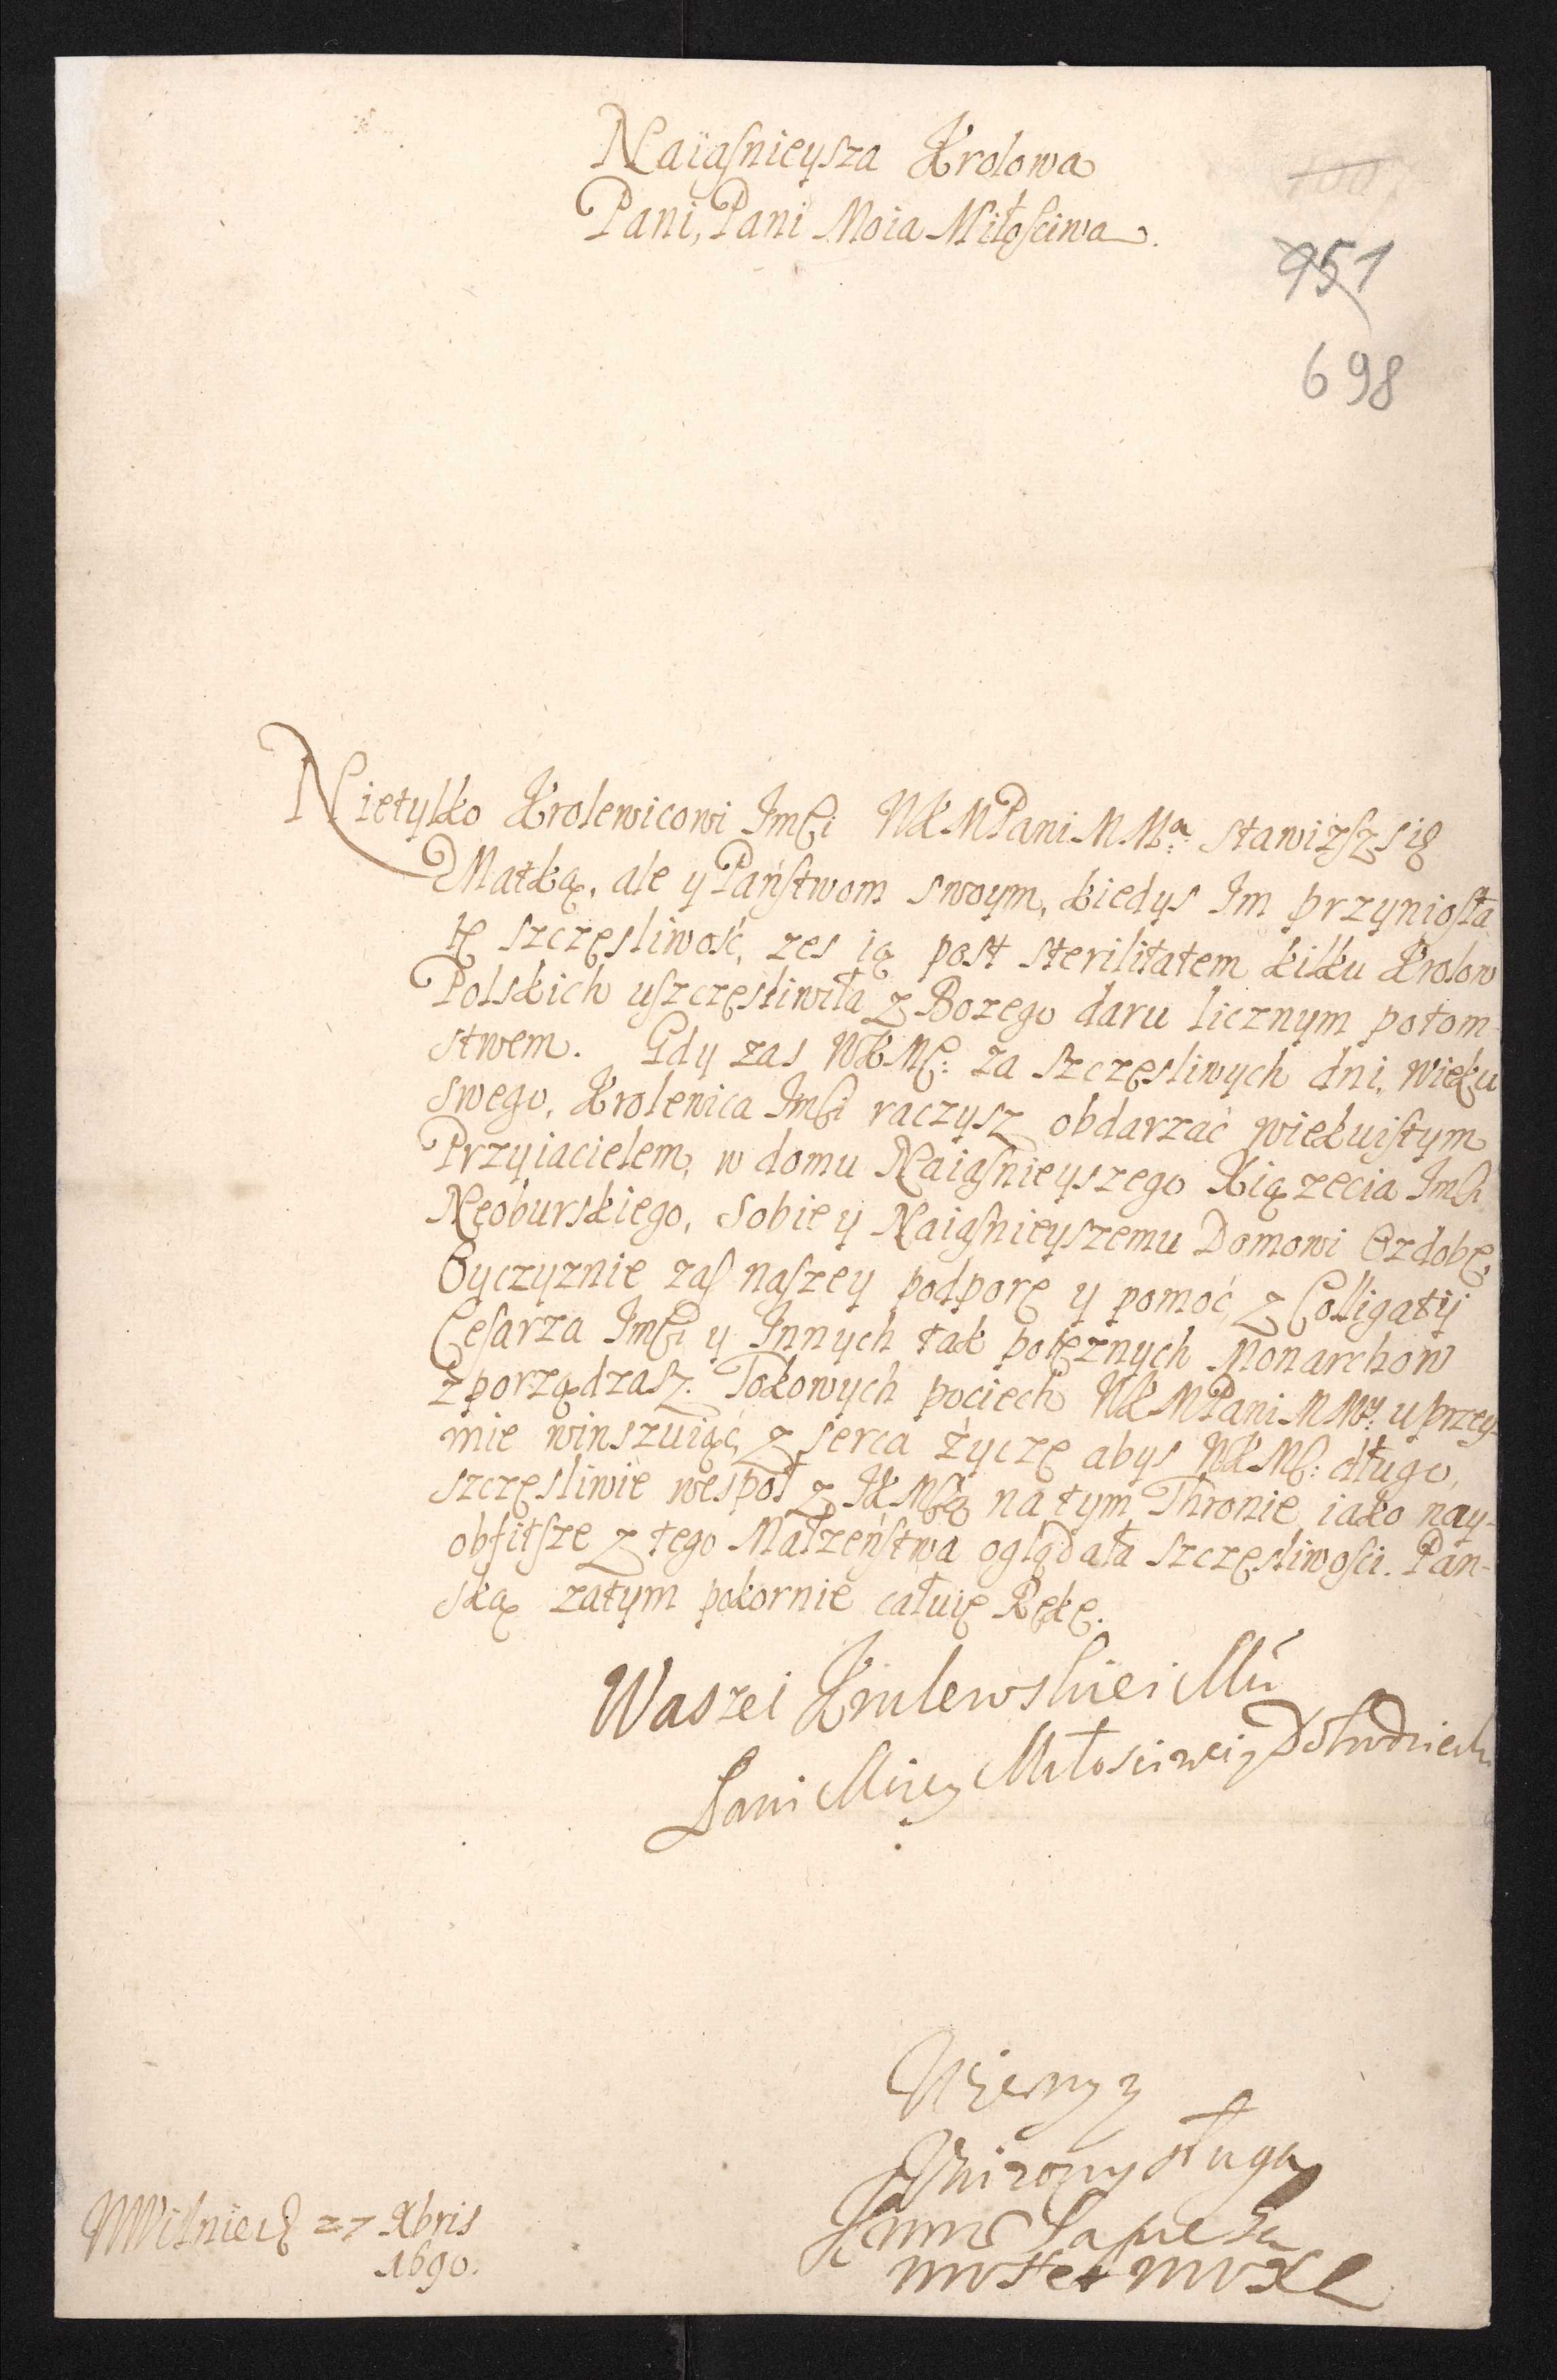 Naiaſnieysza Krolowa
Pani, Pani Moia Miłoſciwa.
951
698
Nietylko Krolewicowi ImCi WKMPani M Mа stawiszſz się
Matką, ale y Pańſtwom swoym, kiedys Im przyniosła
tę szczęsliwość, zes ią post sterilitatem kilku Krolow
Polskich uſzczęsliwiła z Bozego daru licznym potom-
stwem. Gdy zas WKMC: za szczęsliwych dni, wieku
swego, Krolewica ImCi raczysz obdarzać wiekuiſtym
Przyiacielem, w domu Naiaſnieyszego Xiązecia ImCi
Neoburskiego, Sobie y Naiaſnieyszemu Domowi Ozdobę
Oyczyznie zaſ naſzey podporę y pomoc, z Colligatij
Ceſarza ImCi y Innych tak potęznych Monarchow
zporządzasz. Takowych pociech WKMPani M Mey uprzey-
mie winszuiąc, z serca życzę abys WKMC: długo,
szczęsliwie wespoł z JKMCią na tym Thronie iako nay-
obfitſze z tego Małzeńſtwa oglądała szczęsliwoſci. Pan-
ską zatym pokornie całuię Rękę.
Waszei Krulewskiei Mći
Pani Miey Miłosciwei y Dobrodzieiki
Wierny y
Unizony sługa
Sapieha
W Wiſniczu 27 Xbris
1690.